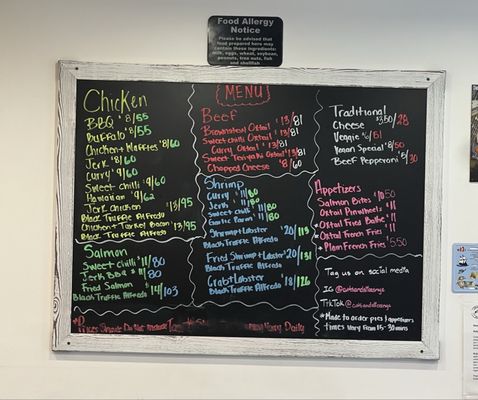 Food Allergy
Notice
Please be advised that
food prepared here may
contain these ingredients:
milk, eggs, wheat, soybean,
peanuts, tree nuts, fish
and shellfish
MENU
Chicken
BBQ $8/55
Buffalo $8/55
Chicken & Waffles $8/60
Jerk $8/60
Curry $9/60
Sweet Chilli $9/60
Hawaiian $9/62
Jerk Chicken
Black Truffle Alfredo $13/95
Chicken Turkey Bacon $13/95
Black Truffle Alfredo
Salmon
Sweet Chilli $11/80
Jerk BBQ $11/80
Fried Salmon
Black Truffle Alfredo $14/103
Beef
Brownstew Oxtail $13/81
Sweet Chilli Oxtail $13/81
Curry Oxtail $13/81
Sweet Teriyaki Oxtail $13/81
Chopped Cheese $8/60
Shrimp
Curry $11/80
Jerk $11/80
Sweet Chilli $11/80
Garlic Parm $11/80
Shrimp & Lobster $20/113
Black Truffle Alfredo
Fried Shrimp & Lobster $20/131
Black Truffle Alfredo
Crab & Lobster $18/126
Black Truffle Alfredo
Traditional
Cheese $3.50/28
Veggie $6/51
Special $8/50
Beef Pepperoni $5/30
Appetizers
Salmon Bites $10.50
Oxtail Pinwheels $11
Oxtail French Fries $11
Plain French Fries $5.50
Tag us on social media
IG
TikTok
*Made to order pies & appetizers
times vary from 15-30 mins
Prices Shown Do Not Include Tax
Vary Daily